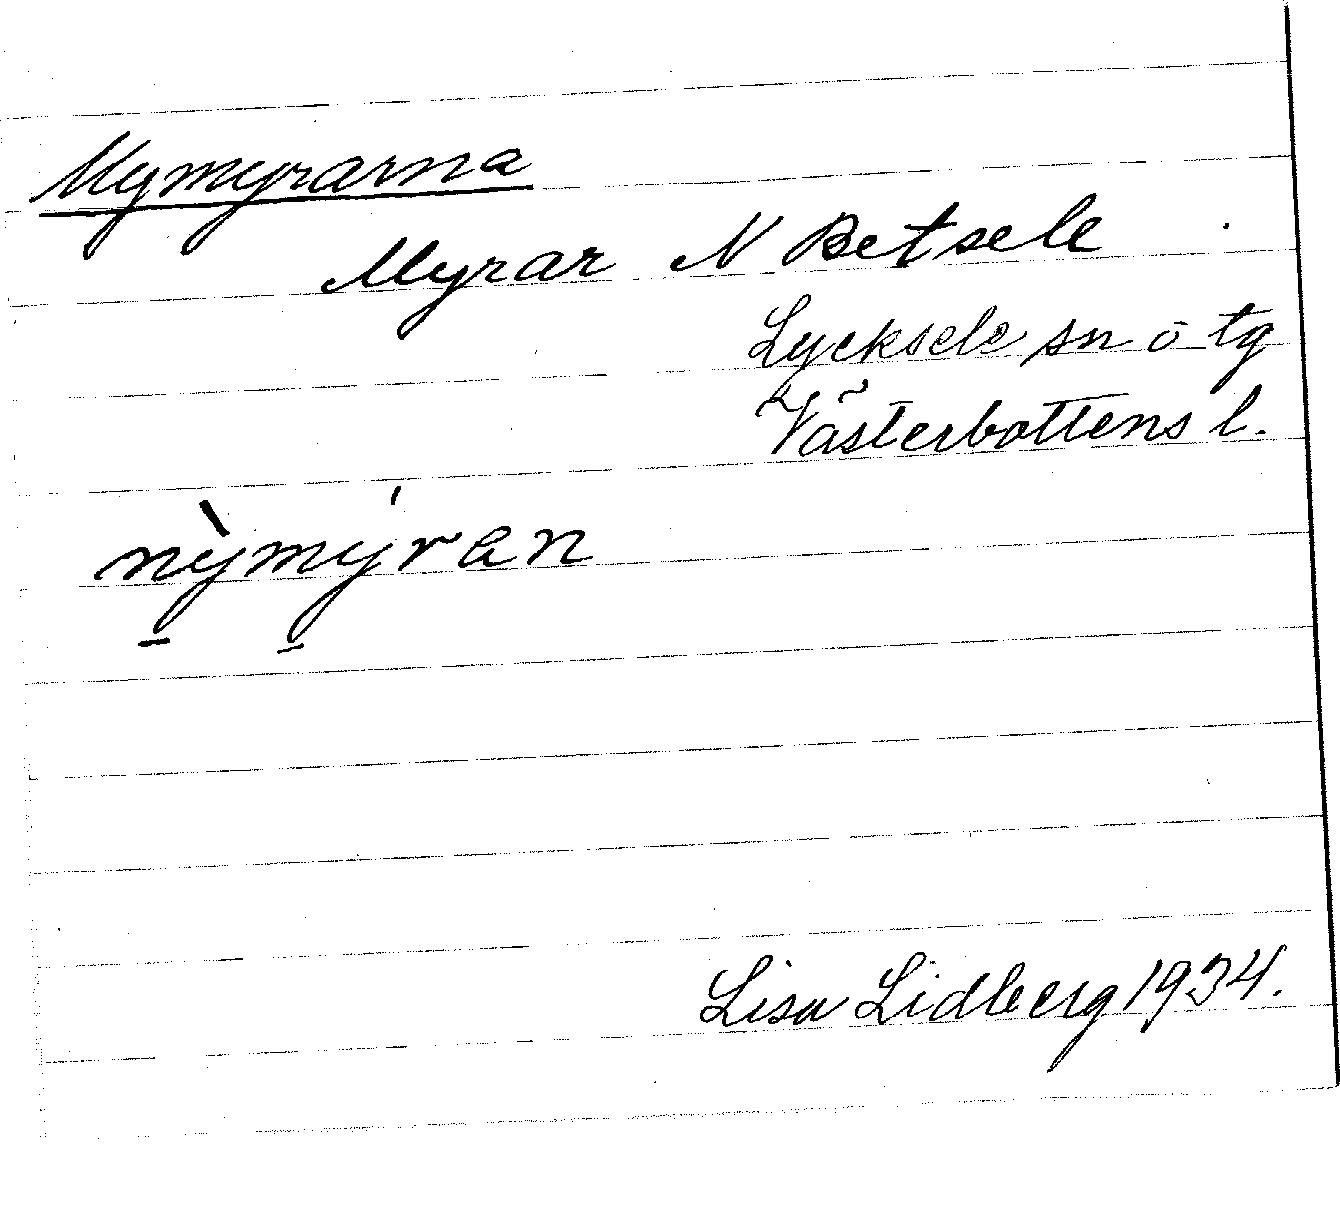 Nymyrarna
Myrar N Betsele
Lycksele sn o tg
Västerbottens l.
nỳmýran
Lisa Lidberg 1934.